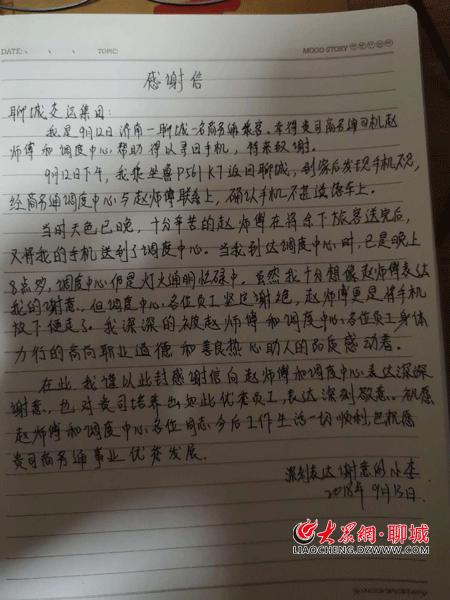 DATE: TOPIC: MOOD STORY
感谢信
聊城交运集团：
我是9月12日济南—聊城一名商务通乘客。幸得贵司商务通司机赵
师傅和调度中心帮助得以寻回手机，特来致谢。
9月12日下午，我乘坐鲁P561K7返回聊城，到家后发现手机不见，
经商务通调度中心与赵师傅联系上，确认手机不甚遗落车上。
当时天色已晚，十分辛苦的赵师傅在将余下旅客送完后，
又将我的手机送到了调度中心。当我到达调度中心时，已是晚上
8点多，调度中心仍是灯火通明忙碌中。虽然我十分想像赵师傅表达
我的谢意，但调度中心各位员工坚定谢绝，赵师傅更是将手机
放下便走了。我深深的被赵师傅和调度中心各位员工身体
力行的高尚职业道德和善良热心助人的品质感动着。
在此，我谨以此封感谢信向赵师傅和调度中心表达深深
谢意，也对贵司培养出如此优秀员工，表达深刻敬意。祝愿
赵师傅和调度中心各位同志今后工作生活一切顺利，也祝愿
贵司商务通事业优秀发展。
深刻表达谢意的小李
2018年9月13日
大众网·聊城
LIAOCHENG.DZWWW.COM